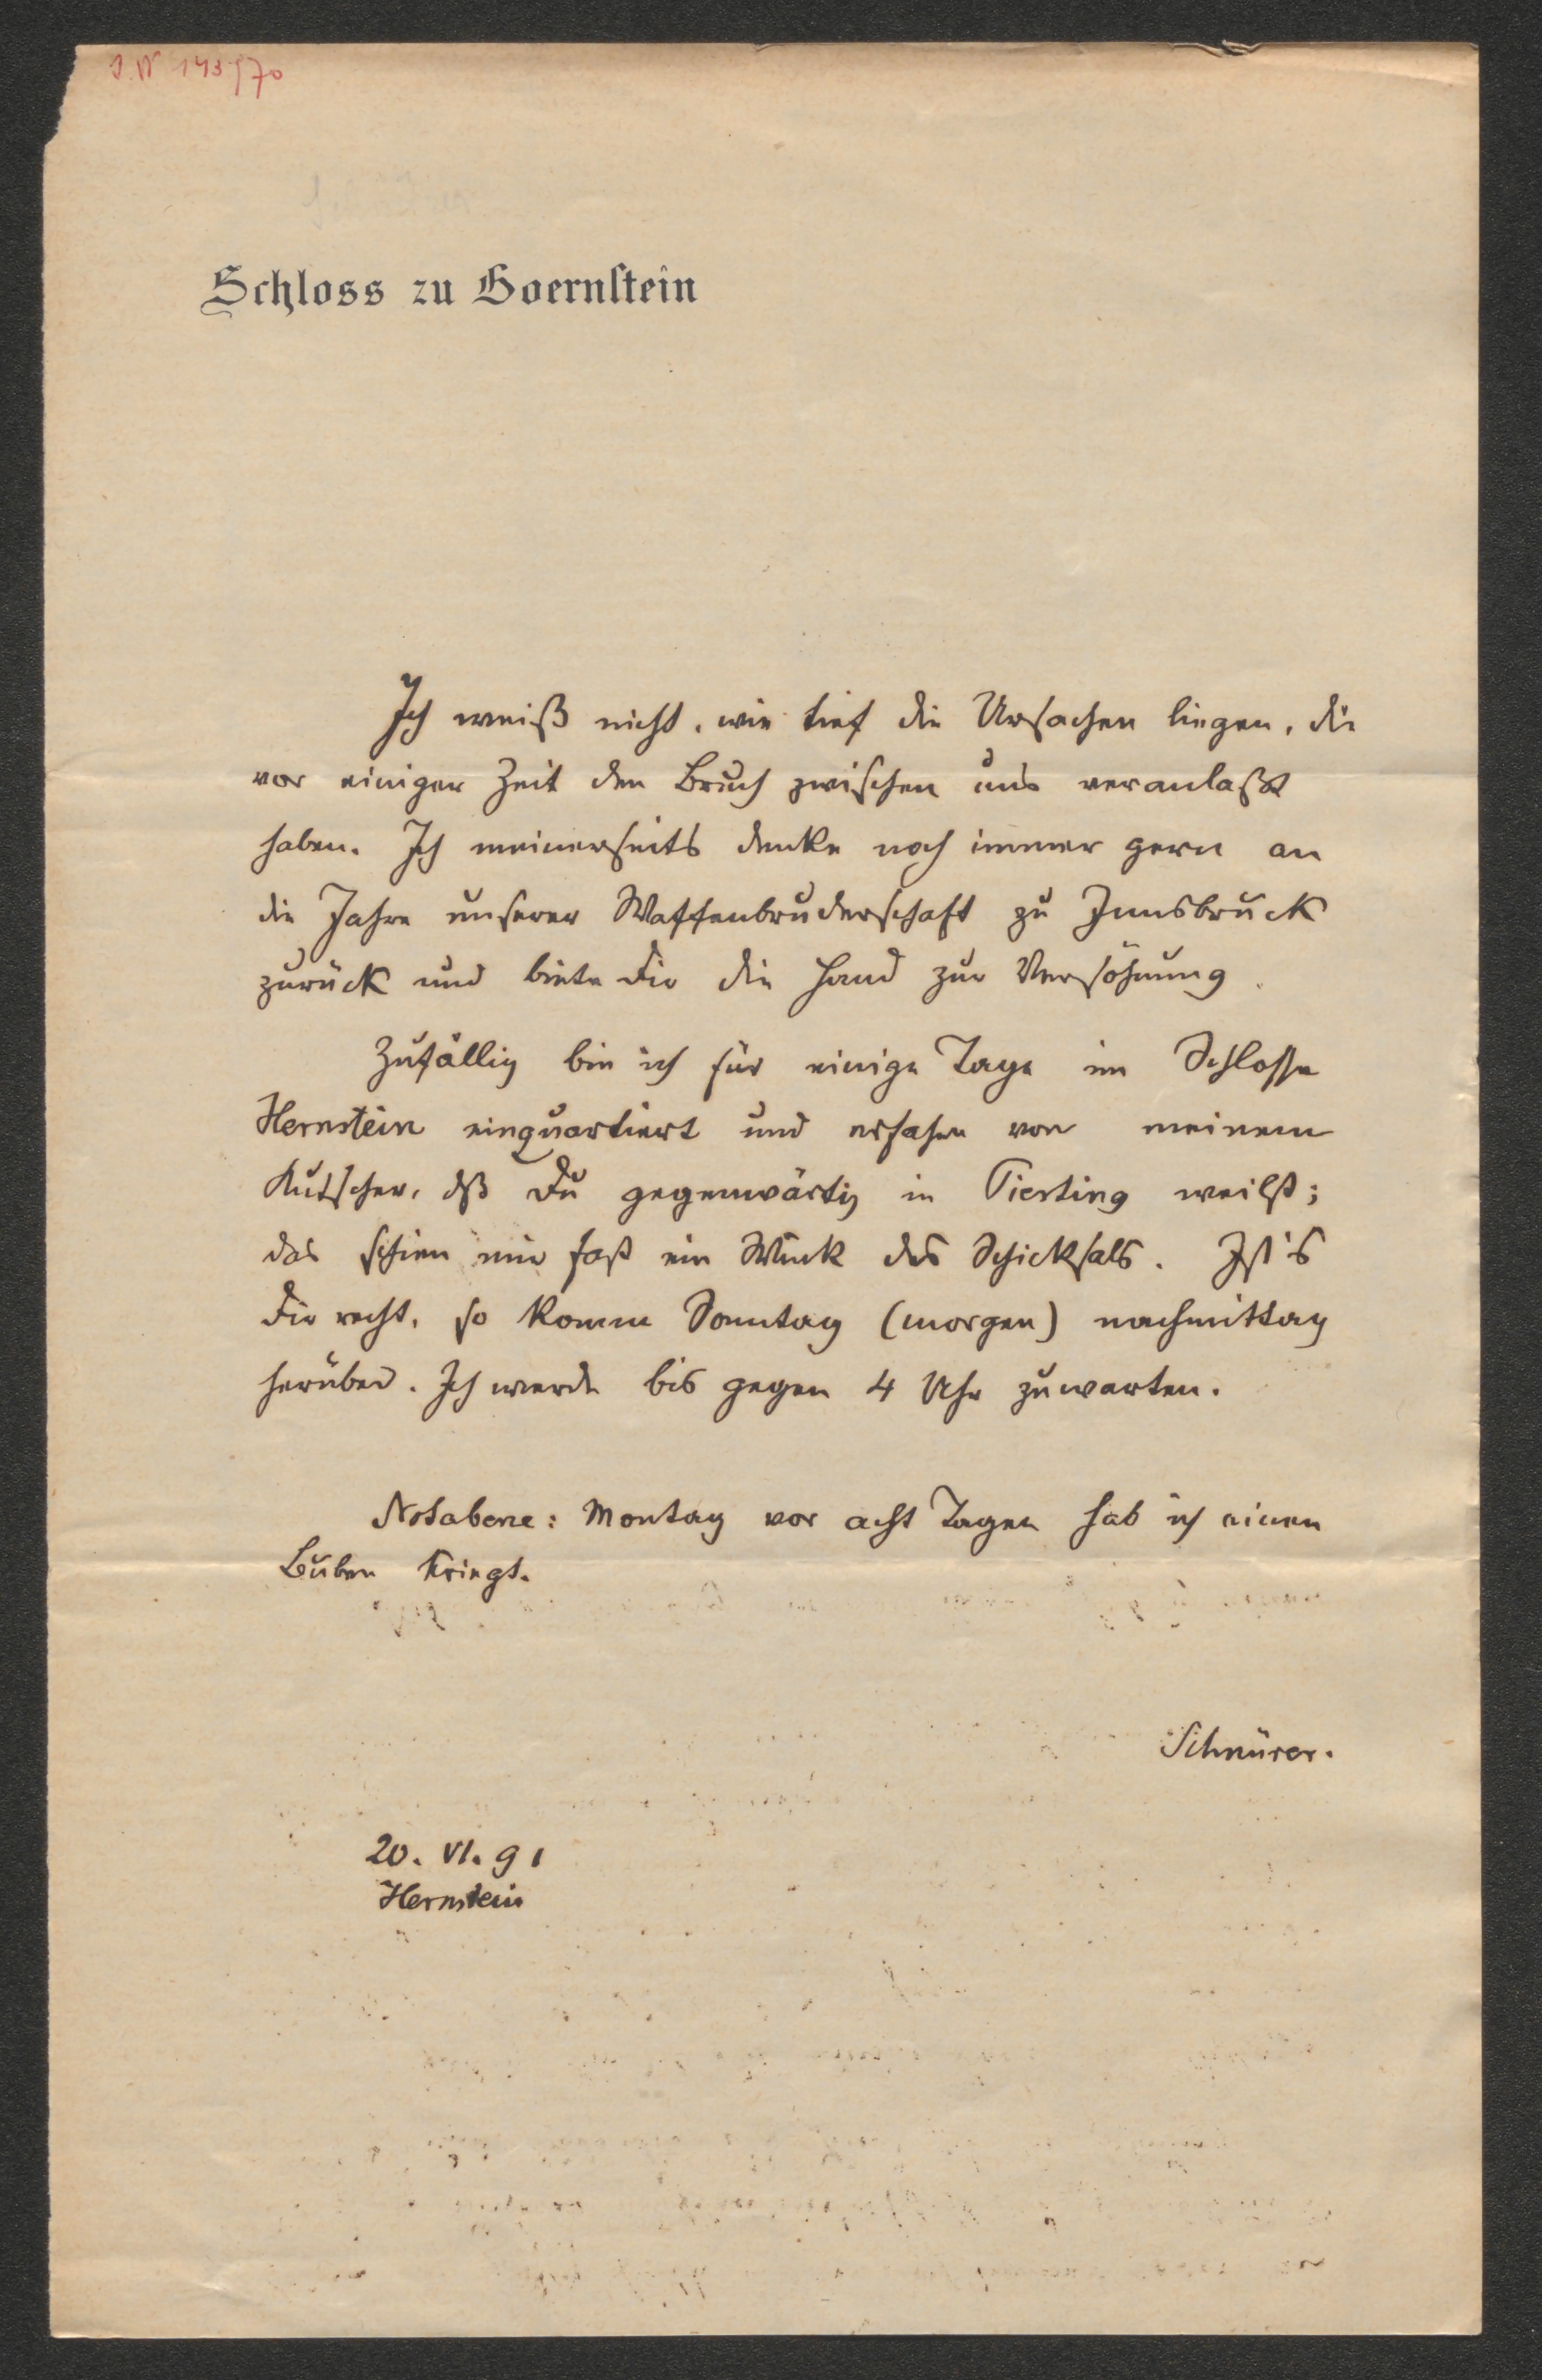 J.N 143570
Schloss zu Hoernstein
Ich weiß nicht, wie tief die Ursachen liegen, die
vor einiger Zeit den Bruch zwischen uns veranlaßt
haben. Ich meinerseits denke noch immer gern an
die Jahre unserer Waffenbruderschaft zu Innsbruck
zurück und biete Dir die Hand zur Versöhnung.
Zufällig bin ich für einige Tage im Schlosse
Hernstein einquartiert und erfahre von meinem
Kutscher, dß Du gegenwärtig in Piesting weilst;
das schien mir fast ein Wink des Schicksals. Ist's
Dir recht, so komm Sonntag (morgen) nachmittag
herüber. Ich werde bis gegen 4 Uhr zuwarten.
Notabene: Montag vor acht Tagen hab ich einen
Buben kriegt.
Schnürer.
20. VI. 91
Hernstein